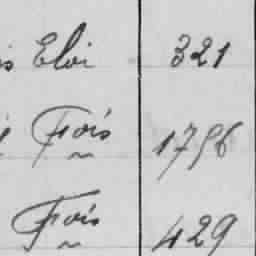 is Eloi 321
Fois 1756
Fois 429